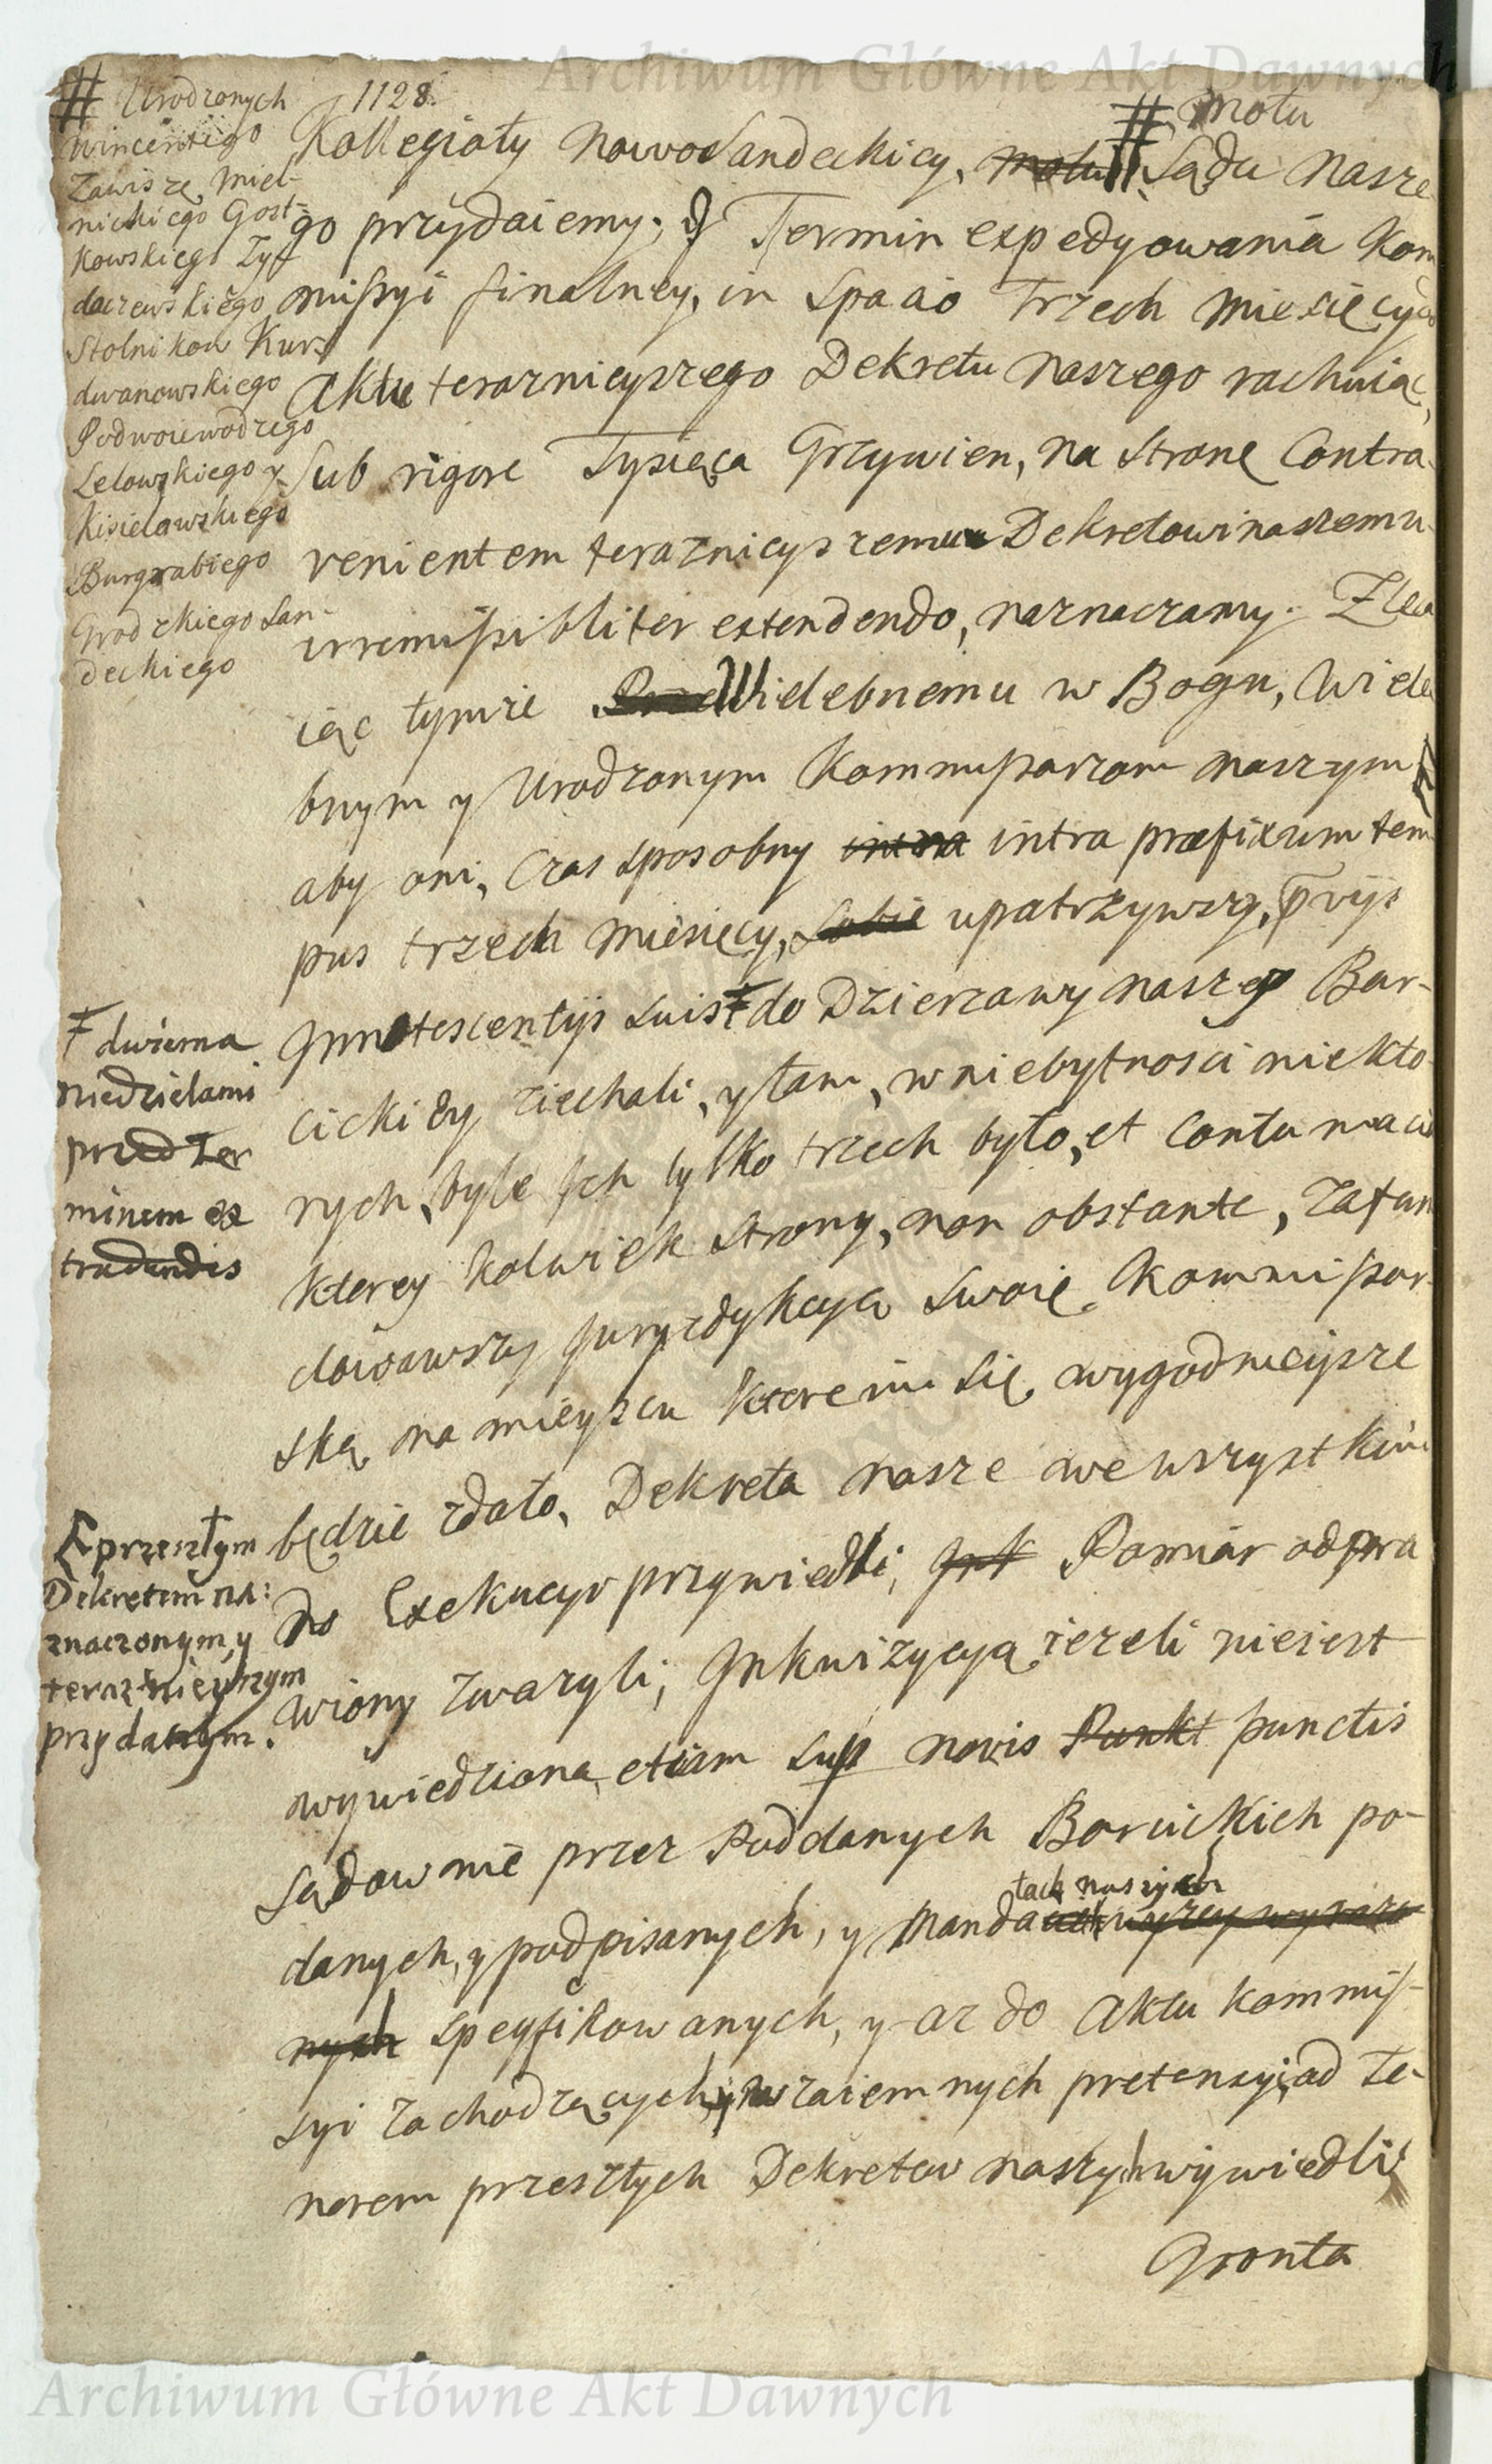 Archiwum Główne Akt Dawnych
1128.
# Urodzonych
Wincentego
Zawiszę Miel-
nickiego Gost-
kowskiego Zyf
daczewskiego
Stolnikow Kur-
dwanowskiego
Podwoiewodzego
Lelowskiego y
Kisielowskiego
Burgrabiego
Grodzkiego San-
deckiego
# motu
Kollegiaty Nowosandeckicy, motu # Sądu Nasze
go przydaiemy; Termin expedyowania Kom
missyi finalney, in spacio Trzech Miesięcy
Aktu terazniejszego Dekretu Naszego rachuiąc,
Sub rigore Tysiąca Grzywien, na Stronę Contra
venientem teraznieyszemu Dekretowi naszemu
irremissibiliter extendendo, naznaczamy. Zlea
iąc tymże Wielebnemu w Bogu, Wiele
bnym y Urodzonym Kommissarzom naszym
aby oni, Czas sposobny intra intra præfixum tem
pus trzech Miesięcy, sobie upatrzywszy, prvijs
Innotescentijs suis Ŧ do Dzierzawy naszey Bar-
cickiey ziechali, y tam, w niebytnosci niekto
rych, byle Ich tylko trzech było, et Contumacia
ktorey kolwiek Strony, non obstante, Zafun
dowawszy Juryzdykcyą Swoię Kommissar
ską na mieyscu ktore im się wygodnieysze
będzie zdało, Dekreta nasze we wszystkim
Do Exekucyi przywiedli, Ink Pomiar odpra
wiony zwazyli, Inkwizycyą iezeli nieiest
wywiedziona, etiam sup novis Punkt punctis
Sądownie przez Poddanych Barcickich po-
tach naszych
danych, y podpisanych, y Manda
nych speyfikowanych, y az do Aktu kommis-
syi zachodzących, y wzaiemnych pretensyi, ad te-
norem przeszłych Dekretow naszych wywiedli
Gronta
Ŧ dwiema
niedzielami
przed Ter
minem ex
tradendis
przeszłym
Dekretem na:
znaczonym, y
teraźnieyszym
przydanym.
Archiwum Główne Akt Dawnych